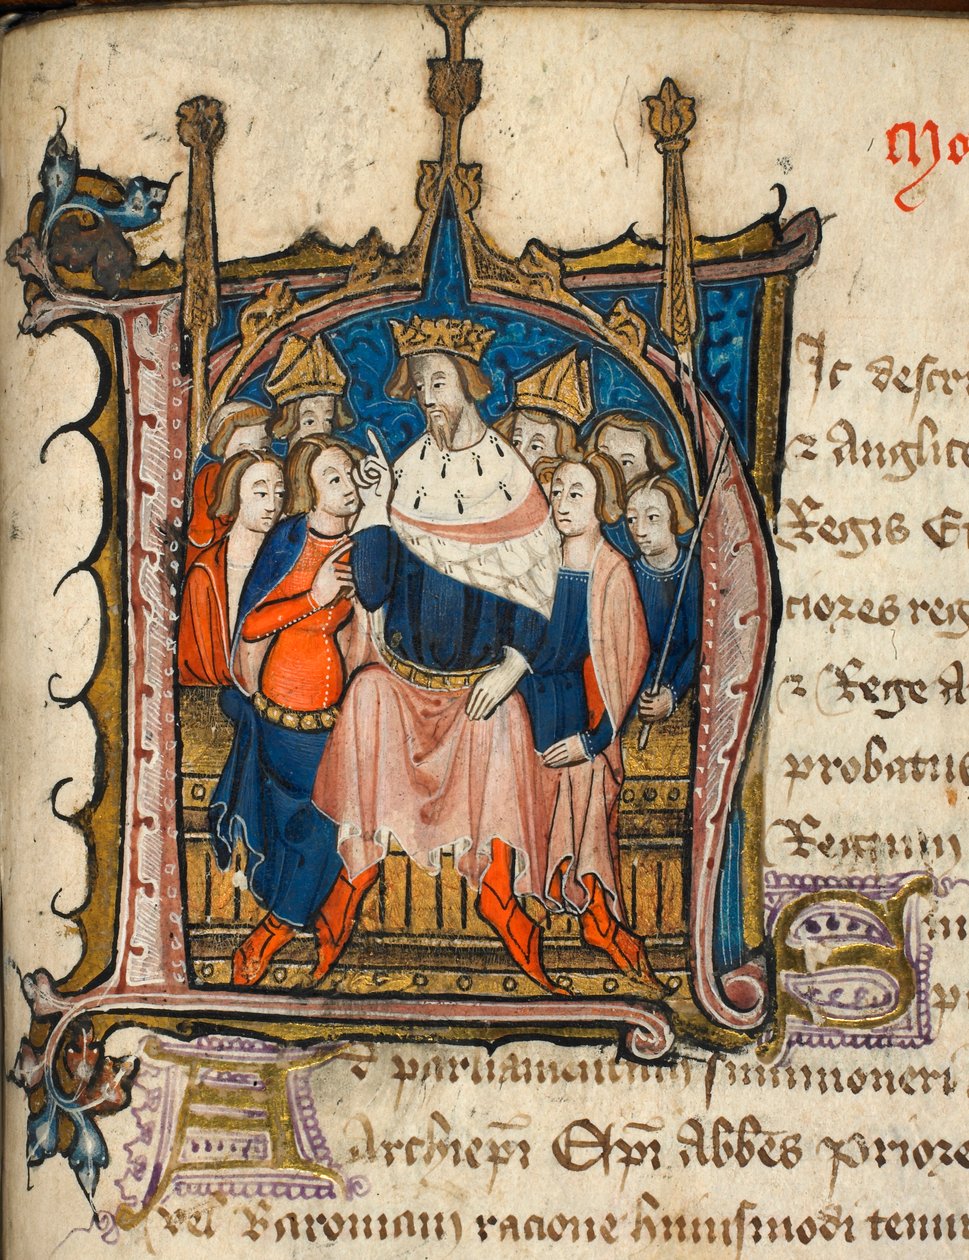 Mo
Ic descr
⁊ Anglic
Regis E
ciores reg
⁊ Rege
probatus
Regnum
Ad parliamentum summoneri
Archiepi Epi Abbes Priore
vel Baroniam racione huiusmodi tenu